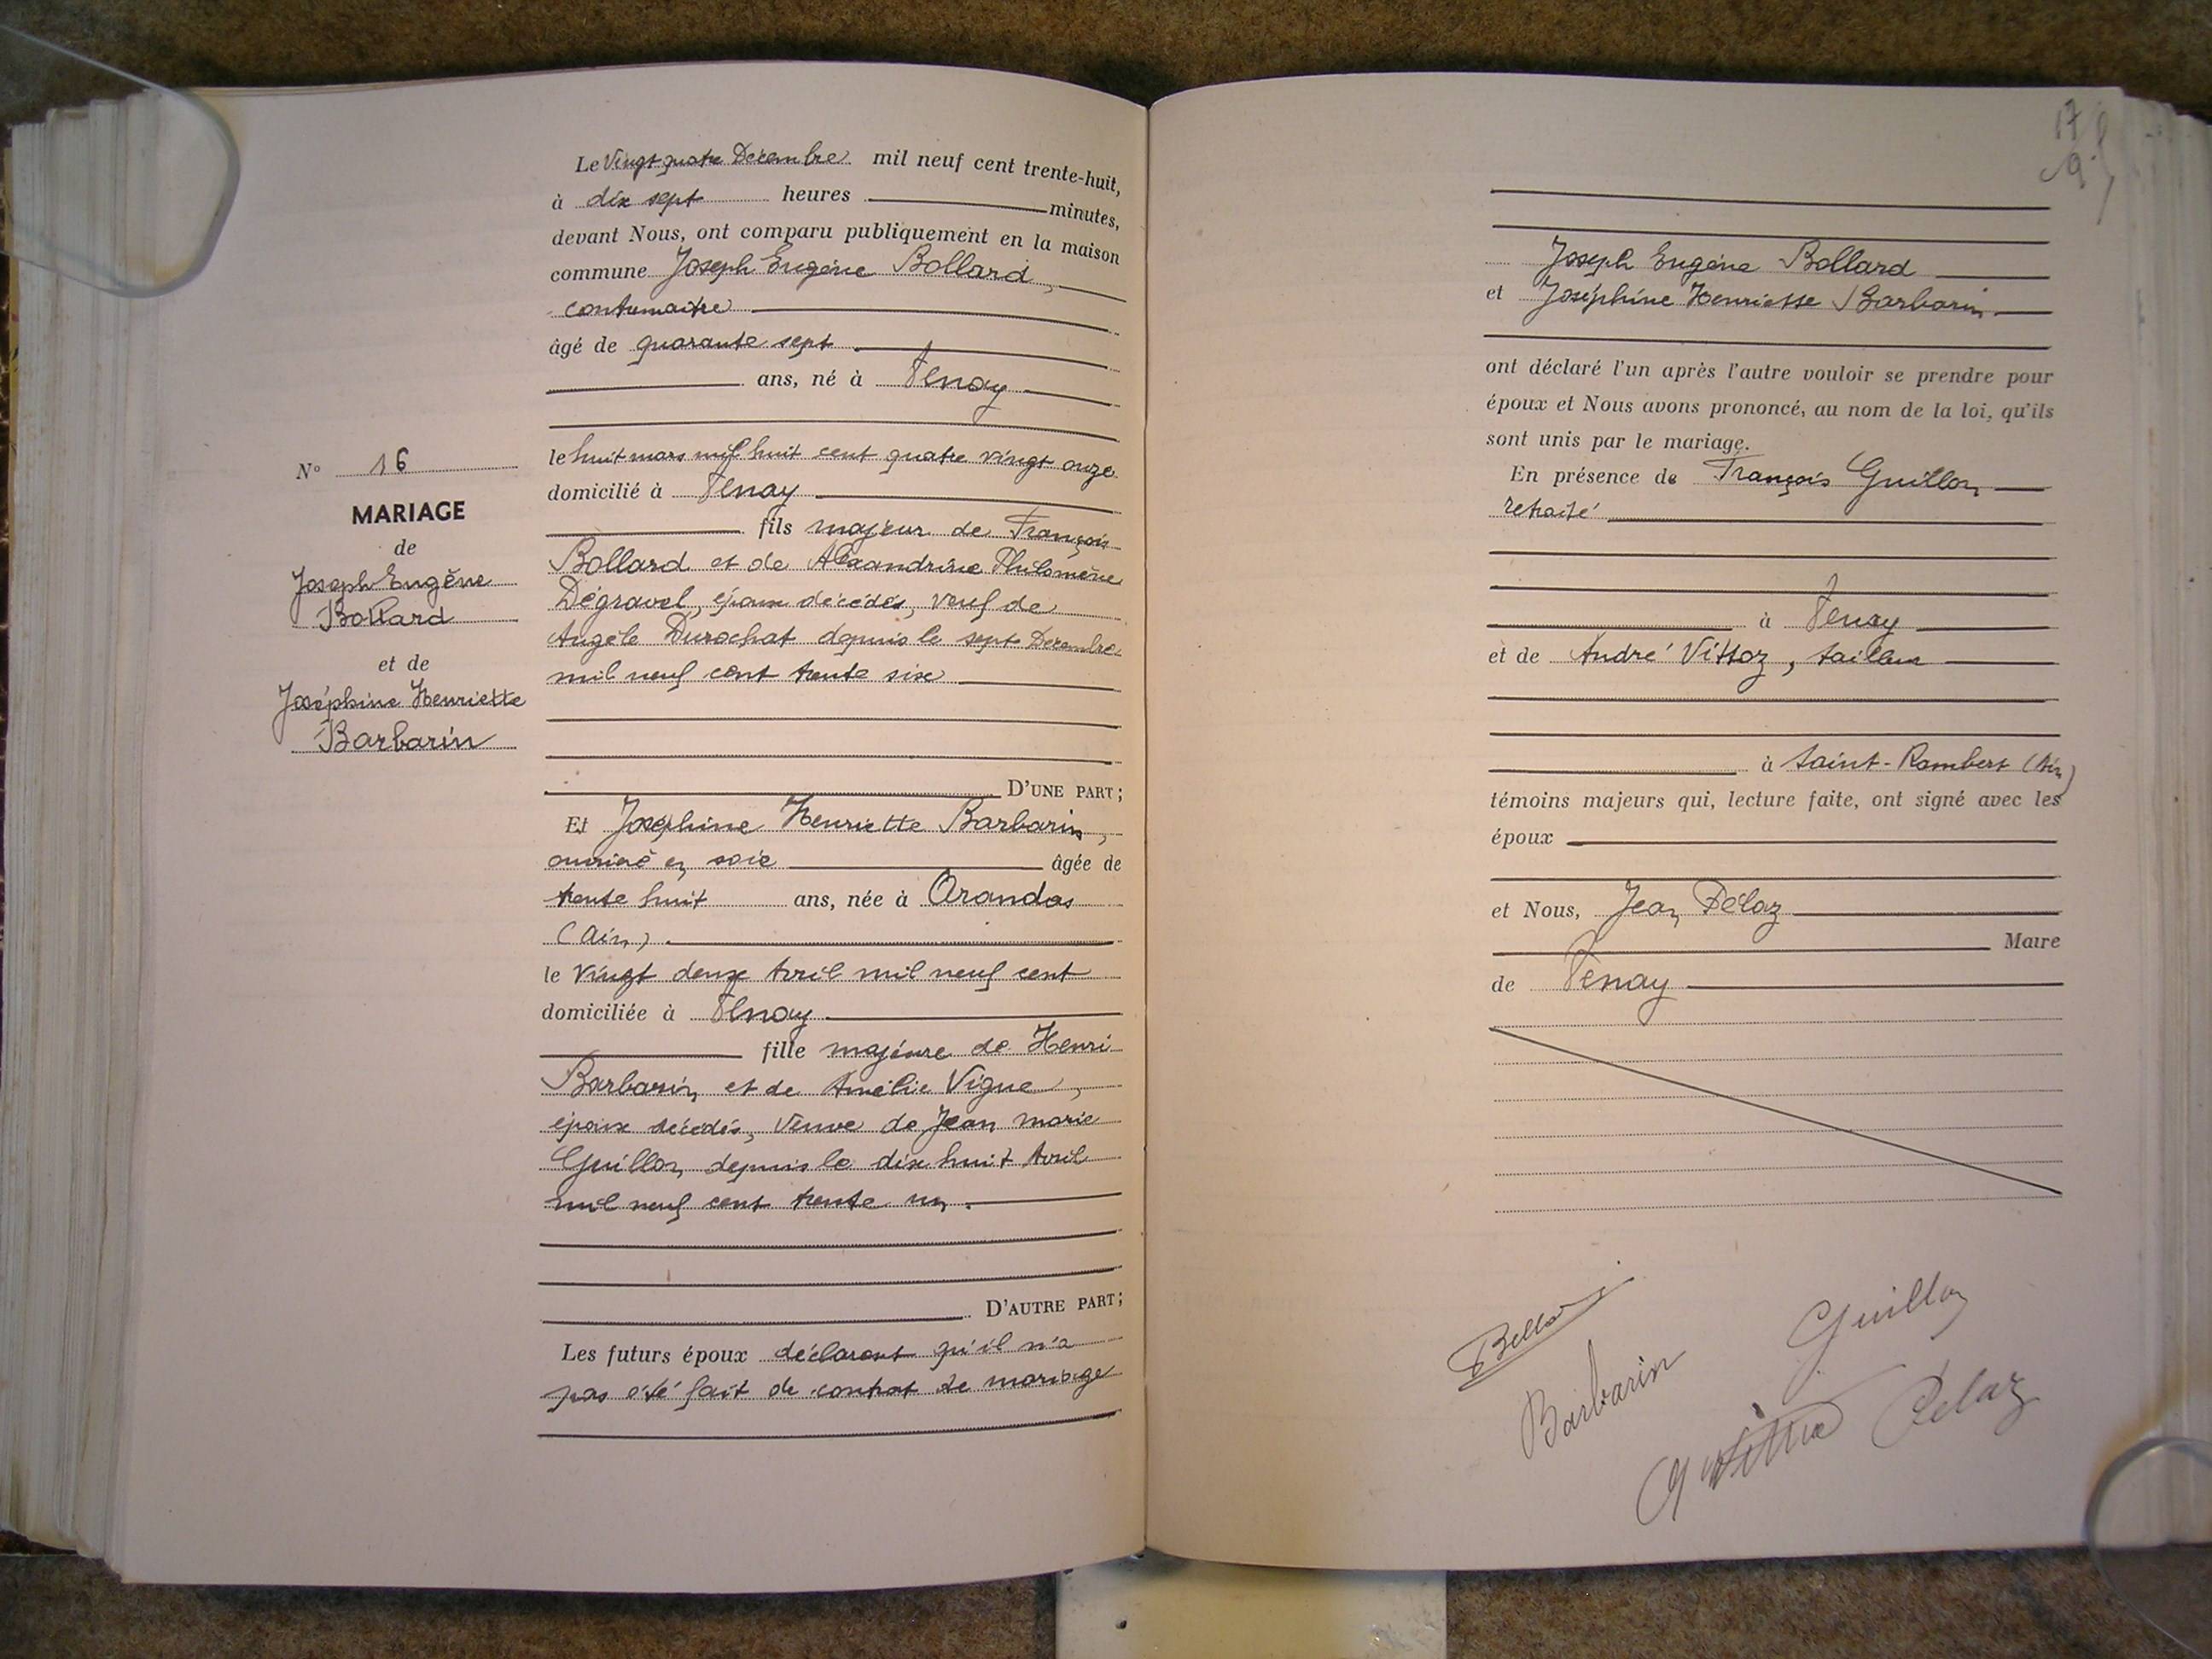 Le Vingt quatre Décembre mil neuf cent trente-huit,
à dix sept heures minutes,
devant Nous, ont comparu publiquement en la maison
commune Joseph Eugène Bollard,
contremaitre
âgé de quarante sept
ans, né à Tenay
le huit mars mil huit cent quatre vingt onze
domicilié à Tenay
fils majeur de François
Bollard et de Alexandrine Philomène
Dégravel, époux décédés, veuf de
Angèle Durochat depuis le sept Décembre
mil neuf cent trente six
D'UNE PART ;
Et Joséphine Henriette Barbarin,
ouvrière en soie âgée de
trente huit ans, née à Arandas
(Ain)
le Vingt deux Avril mil neuf cent
domiciliée à Tenay
fille majeure de Henri
Barbarin et de Amélie Vigne,
époux décédés, Veuve de Jean marie
Guillon depuis le dix huit Avril
mil neuf cent trente un.
D'AUTRE PART ;
Les futurs époux déclarent qu'il n'a
pas été fait de contrat de mariage
N° 16
MARIAGE
de
Joseph Eugène
Bollard
et de
Joséphine Henriette
Barbarin
17
Joseph Eugène Bollard
et Joséphine Henriette Barbarin
ont déclaré l'un après l'autre vouloir se prendre pour
époux et Nous avons prononcé, au nom de la loi, qu'ils
sont unis par le mariage.
En présence de François Guillon
retraité
à Tenay
et de André Vittoz, tailleur
à Saint-Rambert (Ain)
témoins majeurs qui, lecture faite, ont signé avec les
époux
et Nous, Jean Pélaz
Maire
de Tenay
Guillon
Barbarin
Pélaz